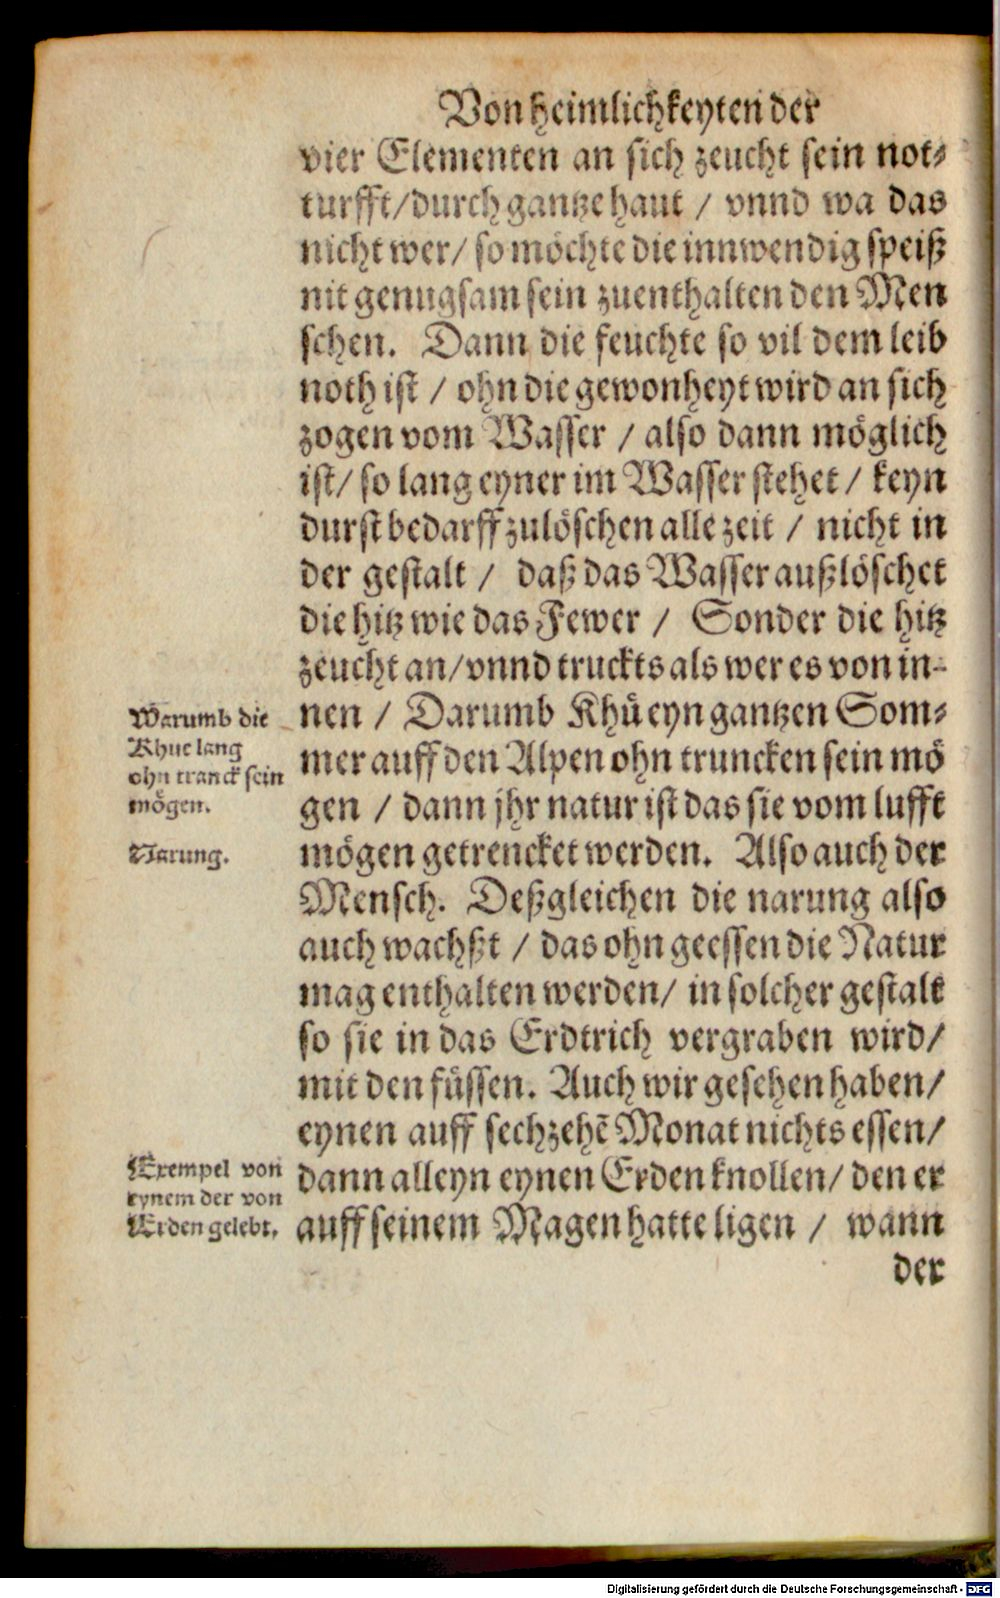 Von heimlichkeyten der
vier Elementen an sich zeucht sein not⸗
turfft/durch gantze haut / vnnd wa das
nicht wer/ so möchte die innwendig speiß
nit genugsam sein zuenthalten den Men
schen. Dann die feuchte so vil dem leib
noth ist / ohn die gewonheyt wird an sich
zogen vom Wasser / also dann möglich
ist/ so lang eyner im Wasser stehet / keyn
durst bedarff zulöschen alle zeit / nicht in
der gestalt / daß das Wasser außlöschet
die hitz wie das Fewer / Sonder die hitz
zeucht an/vnnd truckts als wer es von in⸗
nen / Darumb Khü eyn gantzen Som⸗
mer auff den Alpen ohn truncken sein mö
gen / dann jhr natur ist das sie vom lufft
mögen getrencket werden. Also auch der
Mensch. Deßgleichen die narung also
auch wachßt / das ohn geessen die Natur
mag enthalten werden/ in solcher gestalt
so sie in das Erdtrich vergraben wird/
mit den füssen. Auch wir gesehen haben/
eynen auff sechzehē Monat nichts essen/
dann alleyn eynen Erden knollen/ den er
auff seinem Magen hatte ligen / wann
der
Warumb die
Khue lang
ohn tranck sein
mögen.
Narung.
Exempel von
eynem der von
Erden gelebt.
Digitalisierung gefördert durch die Deutsche Forschungsgemeinschaft - DFG